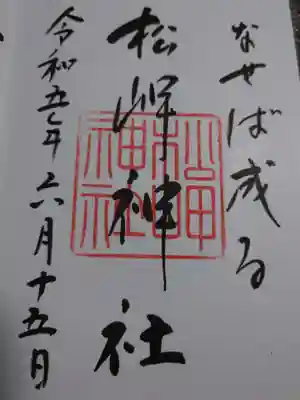 なせば成る
松岬神社
令和五年六月十五日
松岬神社